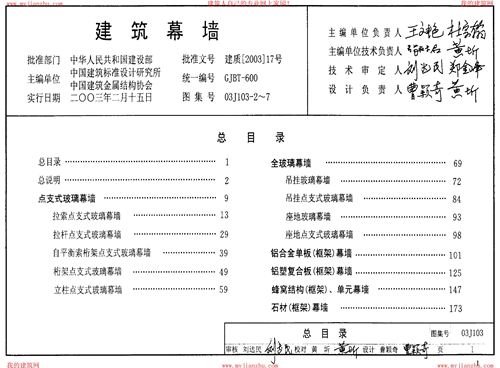 建筑人自己的专业网上家园!
www.myjianzhu.com
我的建筑网
建筑幕墙
批准部门 中华人民共和国建设部 批准文号 建质[2003]17号
主编单位 中国建筑标准设计研究所 统一编号 GJBT-600
中国建筑金属结构协会
实行日期 二〇〇三年二月十五日 图集号 03J103-2~7
主编单位负责人
主编单位技术负责人 黄圻
技术审定人 刘达民
设计负责人 曹颖奇 黄圻
总目录
总目录 1
总说明 2
点支式玻璃幕墙 9
拉索点支式玻璃幕墙 13
拉杆点支式玻璃幕墙 29
自平衡索桁架点支式玻璃幕墙 39
桁架点支式玻璃幕墙 49
立柱点支式玻璃幕墙 59
全玻璃幕墙 69
吊挂玻璃幕墙 72
吊挂点支式玻璃幕墙 84
座地玻璃幕墙 93
座地点支式玻璃幕墙 98
铝合金单板(框架)幕墙 101
铝塑复合板(框架)幕墙 125
蜂窝结构(框架)、单元幕墙 147
石材(框架)幕墙 173
总目录 图集号 03J103
审核 刘达民 刘达民 校对 黄圻 黄圻 设计 曹颖奇 曹颖奇 页 1
1
我的建筑网
www.myjianzhu.com
www.myjianzhu.com